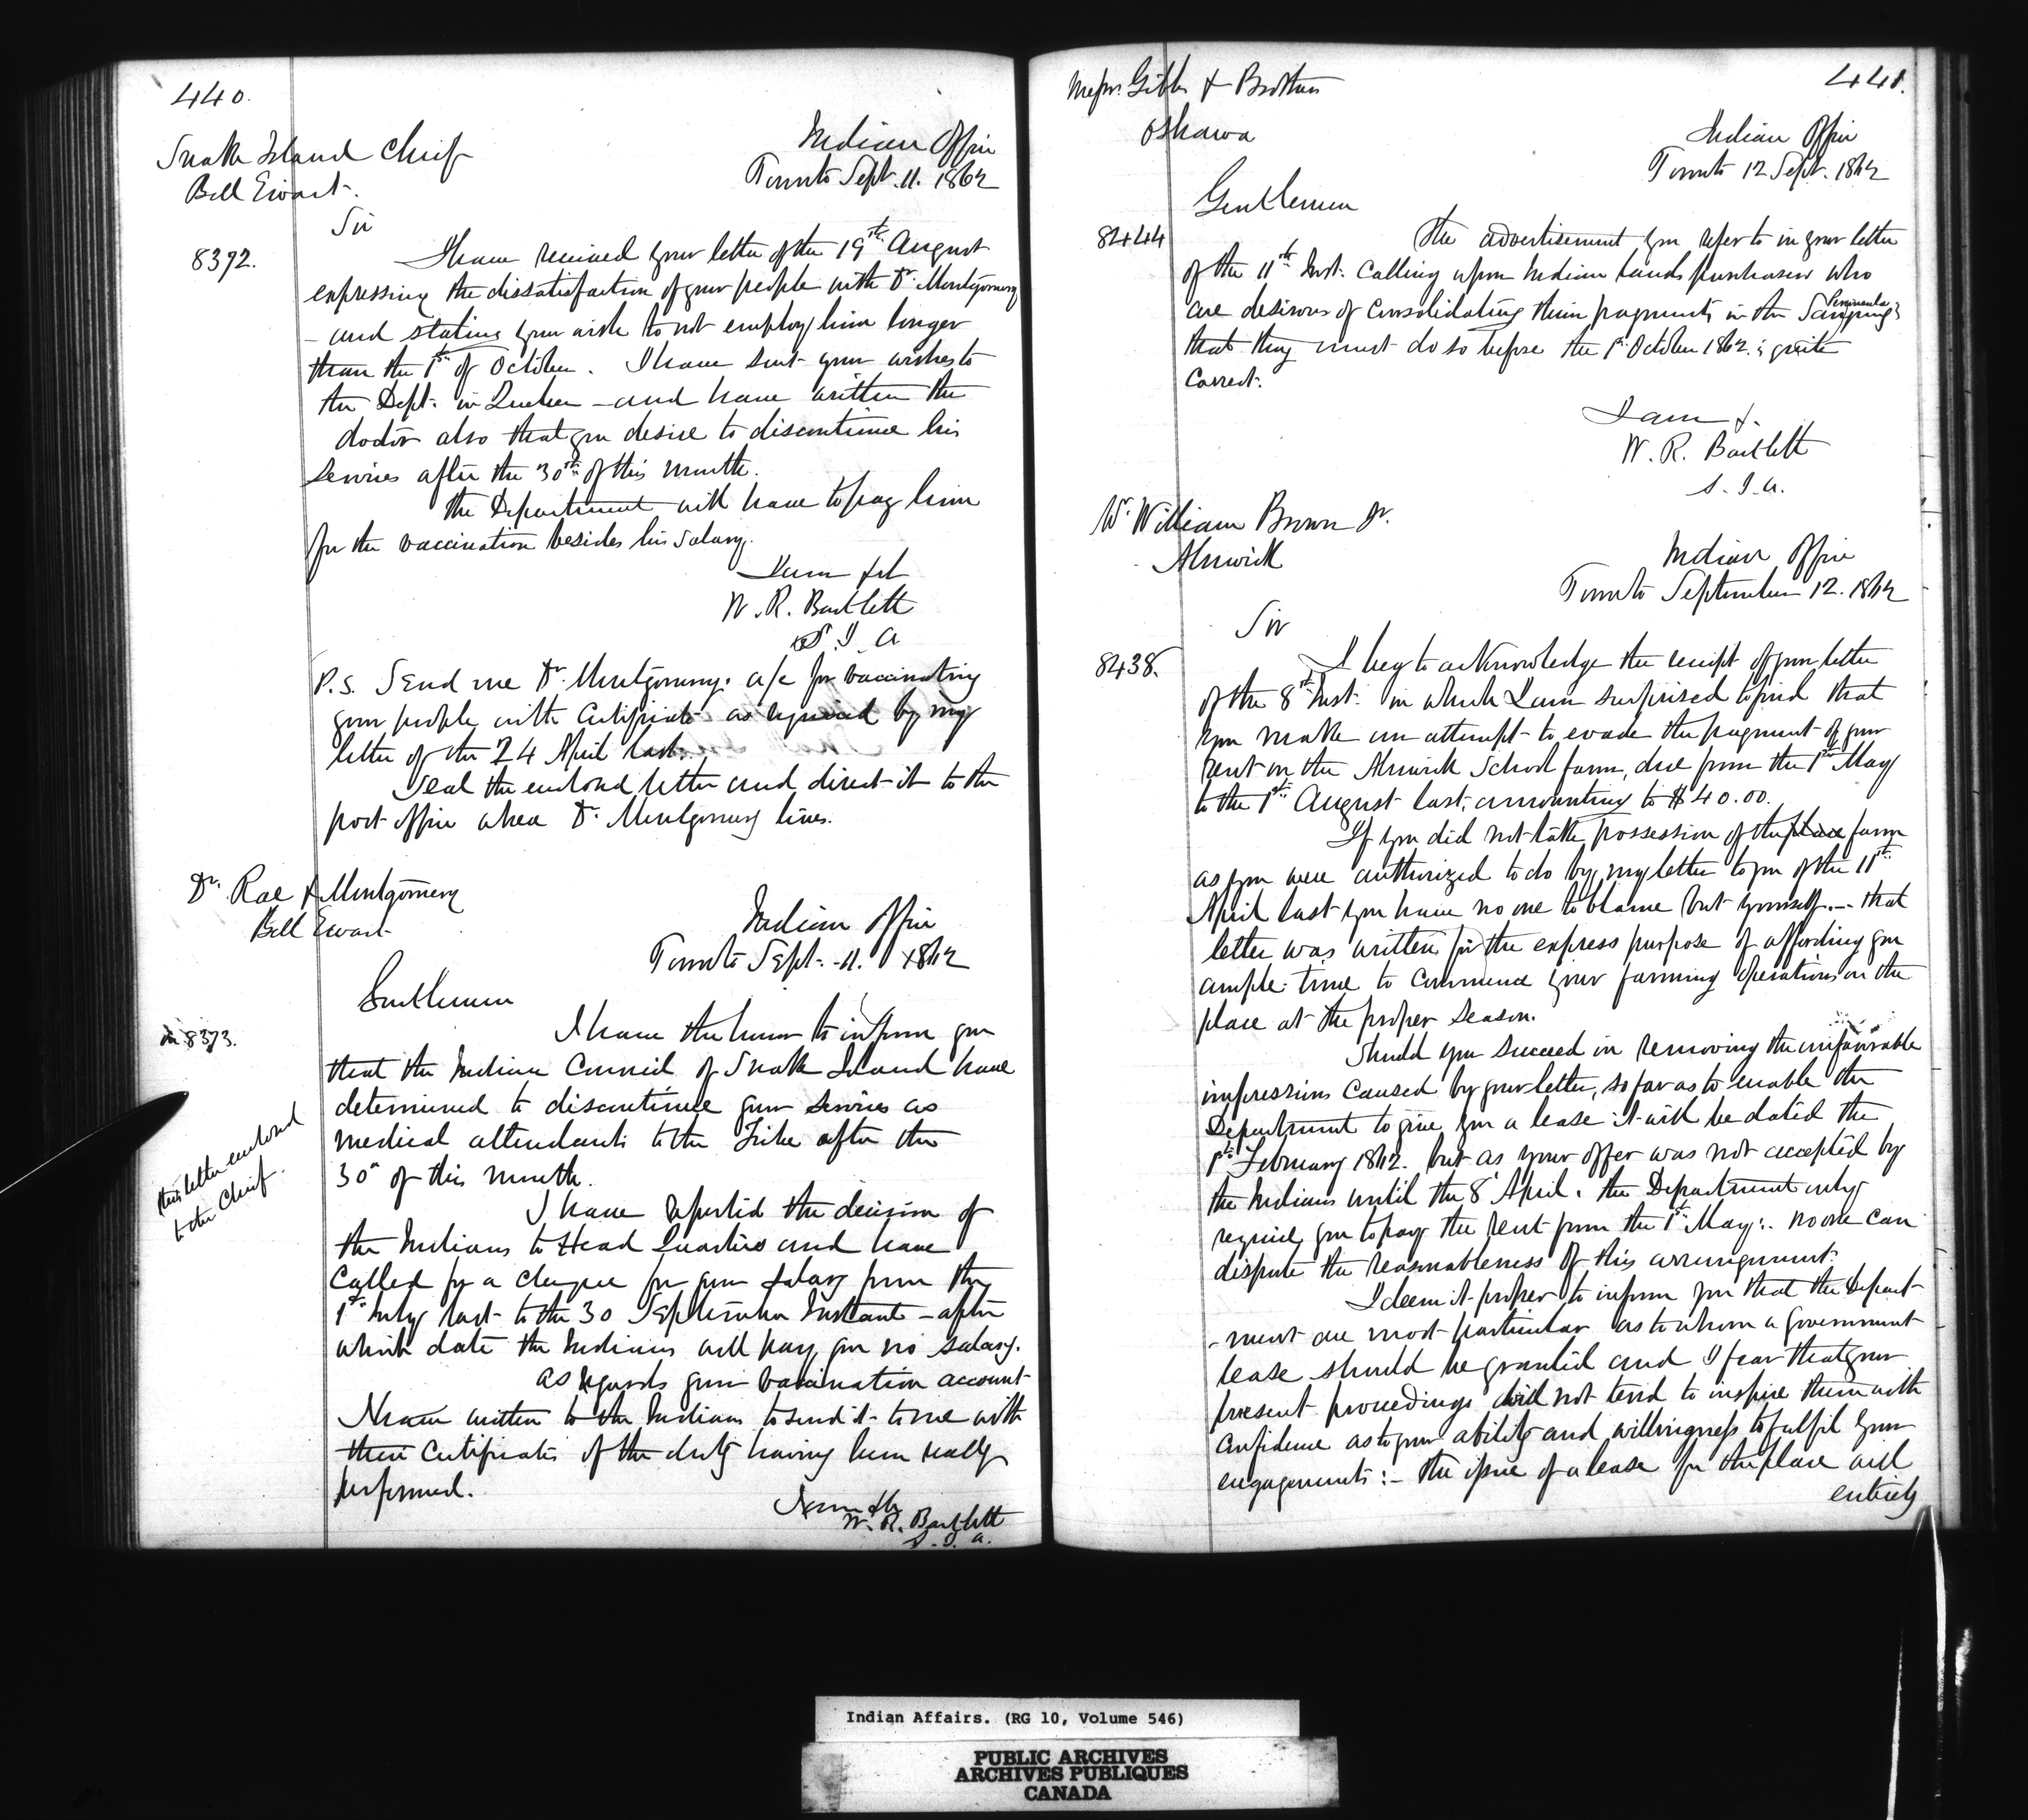 440.
Snake Island Chief
Bell Ewart.
Indian Office
Toronto Sept. 11. 1862
Sir
8392.
I have received your letter of the 19th August
expressing the dissatisfaction of your people with Dr. Montgomery
- and stating your wish to not employ him longer
than the 1st of October. I have sent your wishes to
the Dept. in Quebec - and have written the
doctor also that you desire to discontinue his
services after the 30th of this month.
The Department will have to pay him
for the vaccination besides his salary.
I am &c
W. R. Bartlett
S I A
P.S. Send me Dr. Montgomery. a/c for vaccinating
your people with Certificate as required by my
letter of the 24 April last.
Seal the enclosed letter and direct it to the
post office where Dr. Montgomery lives.
Dr. Rae & Montgomery
Bell Ewart
Indian Office
Toronto Sept. 11. 1862
Gentlemen
8373.
this letter enclosed
to the Chief.
I have the honor to inform you
that the Indian Council of Snake Island have
determined to discontinue your services as
medical attendants to the Tribe after the
30th of this month.
I have reported the decision of
the Indians to Head Quarters and have
called for a cheque for your salary from the
1st July last to the 30 September Instant - after
which date the Indians will pay you no salary.
As regards your vaccination account
I have written to the Indians to send it to me with
their certificate of the duty having been really
performed.
I am &c
W. R. Bartlett
S. I. A.
441.
Messrs. Gibbs & Brothers
Oshawa
Indian Office
Toronto 12 Sept. 1862
Gentlemen
8444
The advertisement you refer to in your letter
of the 11th Inst. calling upon Indian lands purchasers who
are desirous of consolidating their payments in the Saugeeng
Peninsula
that they must do so before the 1st October 1862. is quite
correct.
I am &.
W. R. Bartlett
S. I. A.
Mr. William Brown Jr.
Alnwick
Indian Office
Toronto September 12. 1862
Sir
8438.
I beg to acknowledge the receipt of your letter
of the 8th Inst. in which I am surprised to find that
you make an attempt to evade the payment of your
rent on the Alnwick School farm, due from the 1st May
to the 1st August last, amounting to $40.00.
If you did not take possession of the place farm
as you were authorized to do by my letter to you of the 11th
April last you have no one to blame but yourself. - that
letter was written for the express purpose of affording you
ample time to commence your farming operations on the
place at the proper season.
Should you succeed in removing the unfavorable
impressions caused by your letter, so far as to enable the
Department to give you a lease it will be dated the
1st February 1862. but as your offer was not accepted by
the Indians until the 8 April. the Department only
require you to pay the rent from the 1st May:. no one can
dispute the reasonableness of this arrangement.
I deem it proper to inform you that the Depart
-ment are most particular as to whom a government
lease should be granted and I fear that your
present proceedings will not tend to inspire them with
confidence as to your ability and willingness to fulfil your
engagements :- the issue of a lease for the place will
entirely
Indian Affairs. (RG 10, Volume 546)
PUBLIC ARCHIVES
ARCHIVES PUBLIQUES
CANADA